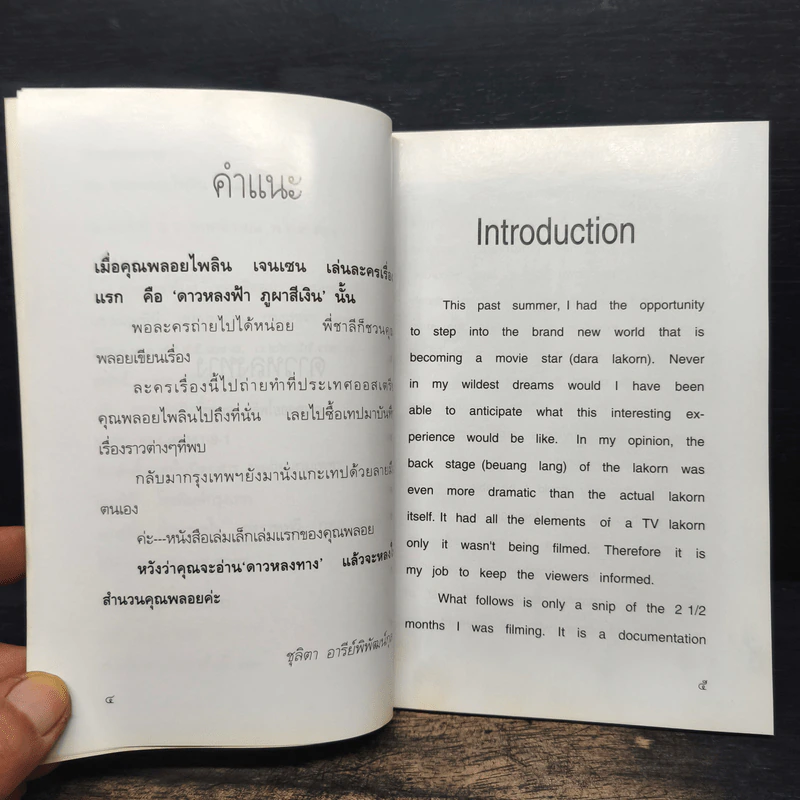 คำแนะ
เมื่อคุณพลอยไพลิน เจนเซน เล่นละครเรื่อง
แรก คือ ‘ดาวหลงฟ้า ภูผาสีเงิน’ นั้น
พอละครถ่ายไปได้หน่อย พี่ชาลีก็ชวนคุณ
พลอยเขียนเรื่อง
ละครเรื่องนี้ไปถ่ายทำที่ประเทศออสเตรี
คุณพลอยไพลินไปถึงที่นั่น เลยไปซื้อเทปมาบันทึ
เรื่องราวต่างๆที่พบ
กลับมากรุงเทพฯยังมานั่งแกะเทปด้วยลายมื
ตนเอง
ค่ะ---หนังสือเล่มเล็กเล่มแรกของคุณพลอย
หวังว่าคุณจะอ่าน‘ดาวหลงทาง’ แล้วจะหลงใ
สำนวนคุณพลอยค่ะ
ชุลิตา อารีย์พิพัฒน์กุล
๔
Introduction
This past summer, I had the opportunity
to step into the brand new world that is
becoming a movie star (dara lakorn). Never
in my wildest dreams would I have been
able to anticipate what this interesting ex-
perience would be like. In my opinion, the
back stage (beuang lang) of the lakorn was
even more dramatic than the actual lakorn
itself. It had all the elements of a TV lakorn
only it wasn't being filmed. Therefore it is
my job to keep the viewers informed.
What follows is only a snip of the 2 1/2
months I was filming. It is a documentation
๕